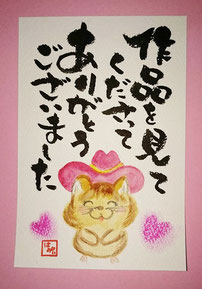 作品を見て
くださって
ありがとう
ございました